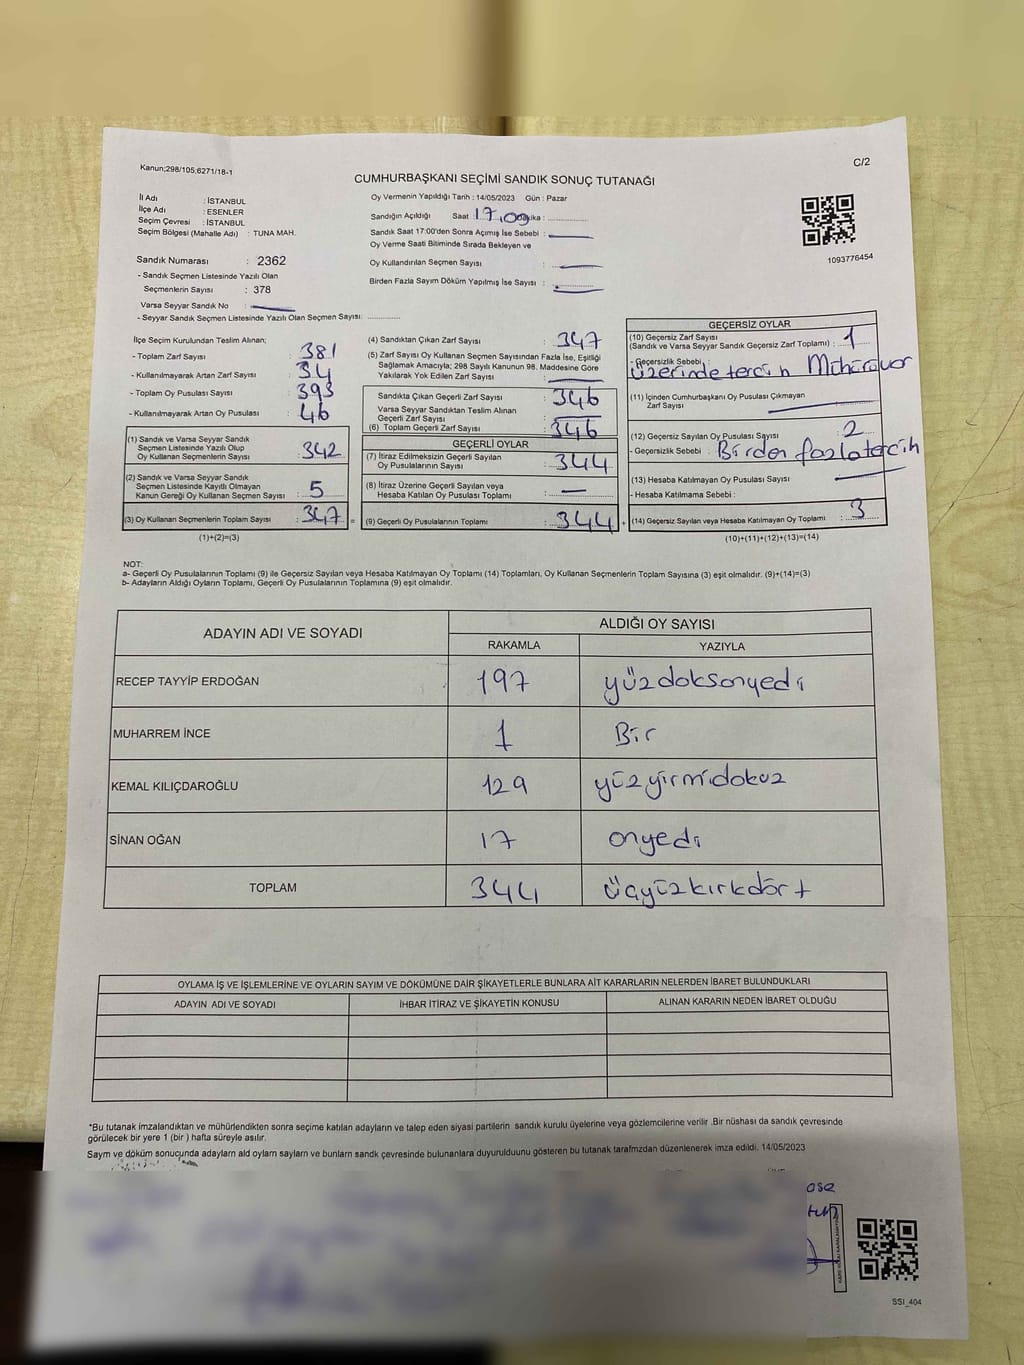 Kanun;298/105;6271/18-1
C/2
CUMHURBAŞKANI SEÇİMİ SANDIK SONUÇ TUTANAĞI
İl Adı : İSTANBUL
İlçe Adı : ESENLER
Seçim Çevresi : İSTANBUL
Seçim Bölgesi (Mahalle Adı) : TUNA MAH.
Sandık Numarası : 2362
- Sandık Seçmen Listesinde Yazılı Olan
Seçmenlerin Sayısı : 378
Varsa Seyyar Sandık No :
- Seyyar Sandık Seçmen Listesinde Yazılı Olan Seçmen Sayısı:
Oy Vermenin Yapıldığı Tarih : 14/05/2023 Gün : Pazar
Sandığın Açıldığı Saat : 17.00 Dakika :
Sandık Saat 17:00'den Sonra Açımış İse Sebebi :
Oy Verme Saati Bitiminde Sırada Bekleyen ve
Oy Kullandırılan Seçmen Sayısı :
Birden Fazla Sayım Döküm Yapılmış İse Sayısı :
1093776454
İlçe Seçim Kurulundan Teslim Alınan;
- Toplam Zarf Sayısı : 381
- Kullanılmayarak Artan Zarf Sayısı : 34
- Toplam Oy Pusulası Sayısı : 393
- Kullanılmayarak Artan Oy Pusulası : 46
(1) Sandık ve Varsa Seyyar Sandık
Seçmen Listesinde Yazılı Olup
Oy Kullanan Seçmenlerin Sayısı : 342
(2) Sandık ve Varsa Seyyar Sandık
Seçmen Listesinde Kayıtlı Olmayan
Kanun Gereği Oy Kullanan Seçmen Sayısı : 5
(3) Oy Kullanan Seçmenlerin Toplam Sayısı : 347 =
(1)+(2)=(3)
(4) Sandıktan Çıkan Zarf Sayısı : 347
(5) Zarf Sayısı Oy Kullanan Seçmen Sayısından Fazla İse, Eşitliği
Sağlamak Amacıyla; 298 Sayılı Kanunun 98. Maddesine Göre
Yakılarak Yok Edilen Zarf Sayısı :
Sandıkta Çıkan Geçerli Zarf Sayısı : 346
Varsa Seyyar Sandıktan Teslim Alınan
Geçerli Zarf Sayısı :
(6) Toplam Geçerli Zarf Sayısı : 346
GEÇERLİ OYLAR
(7) İtiraz Edilmeksizin Geçerli Sayılan
Oy Pusulalarının Sayısı : 344
(8) İtiraz Üzerine Geçerli Sayılan veya
Hesaba Katılan Oy Pusulası Toplamı : —
(9) Geçerli Oy Pusulalarının Toplamı : 344 +
GEÇERSİZ OYLAR
(10) Geçersiz Zarf Sayısı
(Sandık ve Varsa Seyyar Sandık Geçersiz Zarf Toplamı) : 1
- Geçersizlik Sebebi :
üzerinde tercih Mühürü var
(11) İçinden Cumhurbaşkanı Oy Pusulası Çıkmayan
Zarf Sayısı
(12) Geçersiz Sayılan Oy Pusulası Sayısı : 2
- Geçersizlik Sebebi : Birden fazla tercih
(13) Hesaba Katılmayan Oy Pusulası Sayısı :
- Hesaba Katılmama Sebebi :
(14) Geçersiz Sayılan veya Hesaba Katılmayan Oy Toplamı : 3
(10)+(11)+(12)+(13)=(14)
NOT:
a- Geçerli Oy Pusulalarının Toplamı (9) ile Geçersiz Sayılan veya Hesaba Katılmayan Oy Toplamı (14) Toplamları, Oy Kullanan Seçmenlerin Toplam Sayısına (3) eşit olmalıdır. (9)+(14)=(3)
b- Adayların Aldığı Oyların Toplamı, Geçerli Oy Pusulalarının Toplamına (9) eşit olmalıdır.
ADAYIN ADI VE SOYADI
ALDIĞI OY SAYISI
RAKAMLA YAZIYLA
RECEP TAYYİP ERDOĞAN 197 yüzdoksanyedi
MUHARREM İNCE 1 Bir
KEMAL KILIÇDAROĞLU 129 yüzyirmidokuz
SİNAN OĞAN 17 onyedi
TOPLAM 344 üçyüzkırkdört
OYLAMA İŞ VE İŞLEMLERİNE VE OYLARIN SAYIM VE DÖKÜMÜNE DAİR ŞİKAYETLERLE BUNLARA AİT KARARLARIN NELERDEN İBARET BULUNDUKLARI
ADAYIN ADI VE SOYADI İHBAR İTİRAZ VE ŞİKAYETİN KONUSU ALINAN KARARIN NEDEN İBARET OLDUĞU
*Bu tutanak imzalandıktan ve mühürlendikten sonra seçime katılan adayların ve talep eden siyasi partilerin sandık kurulu üyelerine veya gözlemcilerine verilir .Bir nüshası da sandık çevresinde
görülecek bir yere 1 (bir ) hafta süreyle asılır.
Saym ve döküm sonuçunda adayların ald oylarn saylarn ve bunlarn sandk çevresinde bulunanlara duyurulduunu gösteren bu tutanak tarafmzdan düzenlenerek imza edildi. 14/05/2023
SSI_404